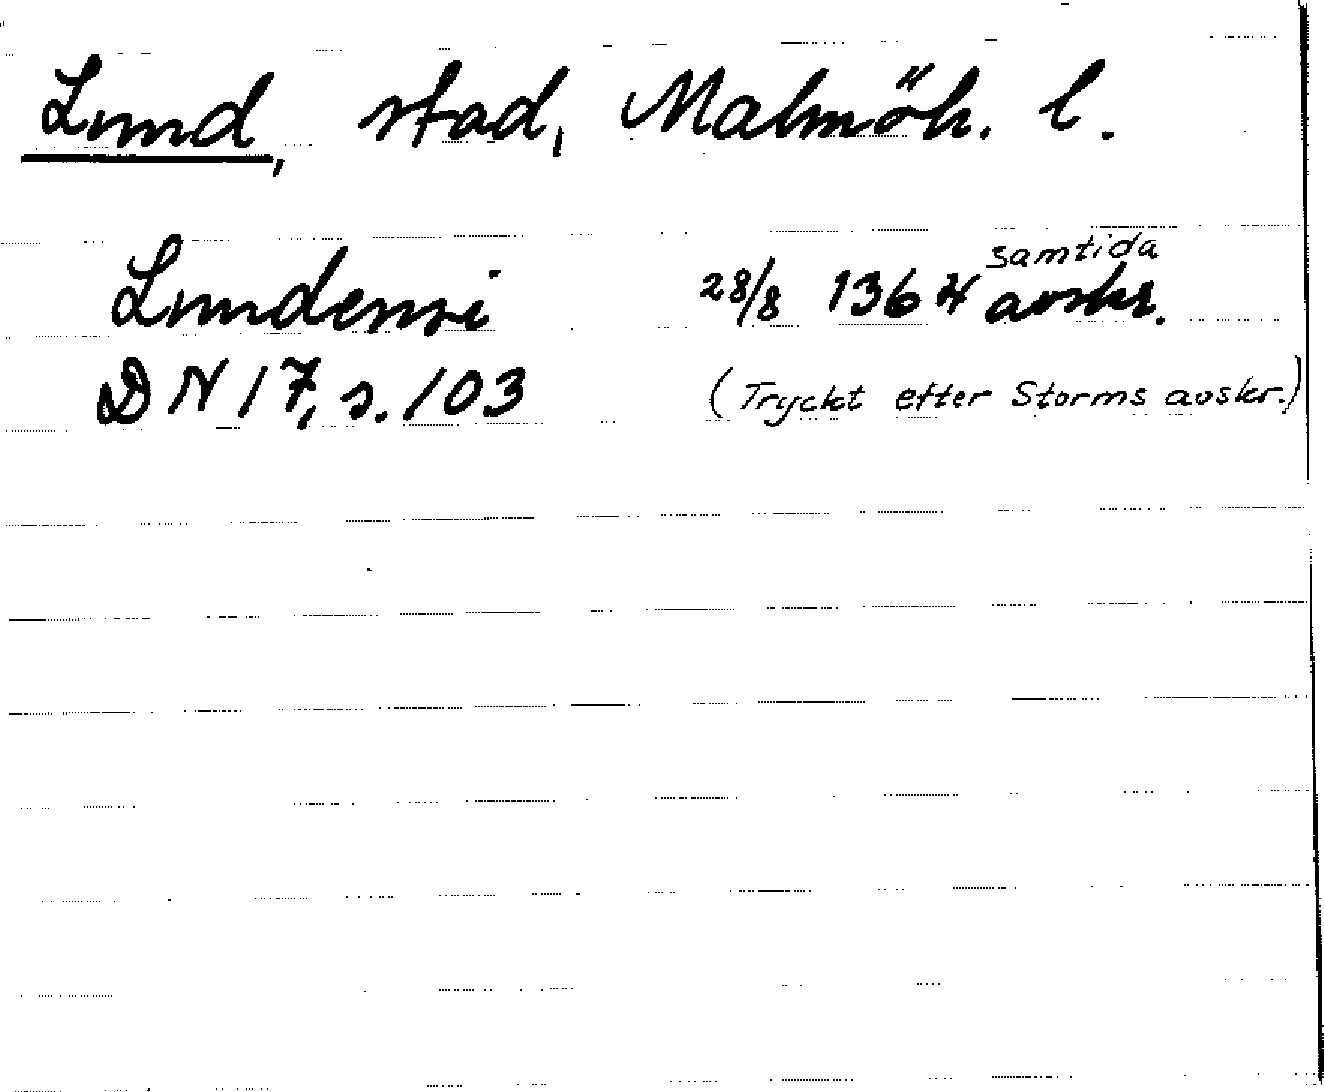 Lund, stad, Malmöh. l.
Lundensi 28/8 1364 samtida avskr.
DN 17, s. 103 (Tryckt efter Storms avskr.)